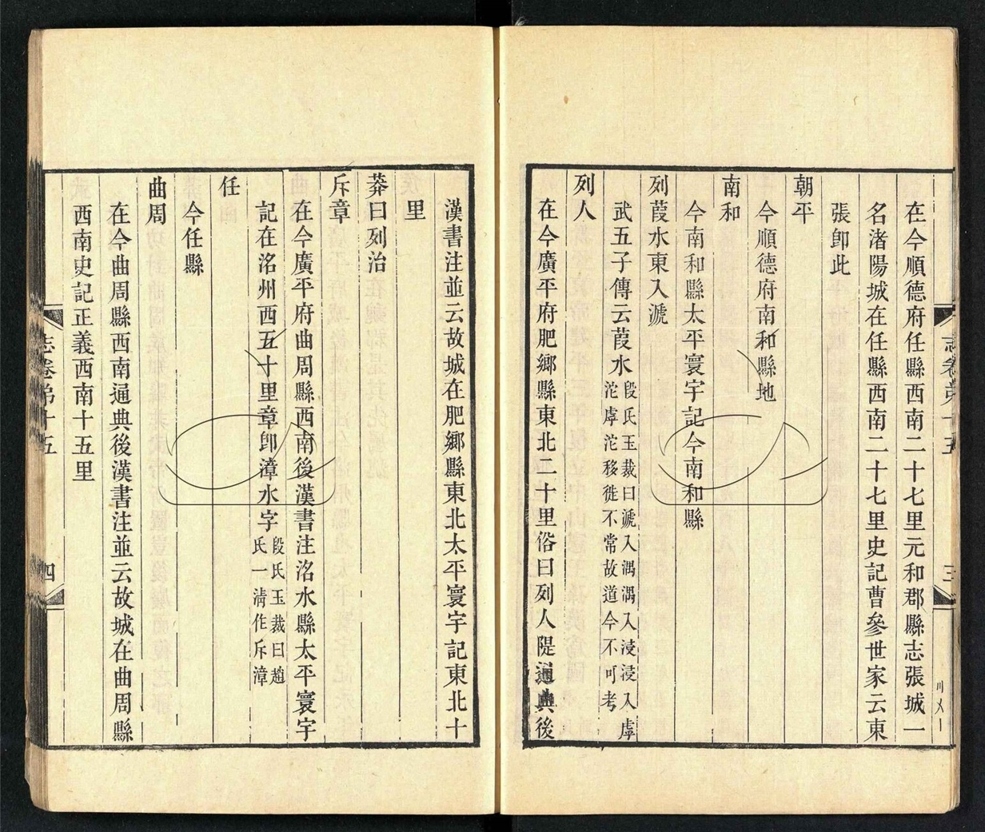 在今順德府任縣西南二十七里元和郡縣志張城一
名渚陽城在任縣西南二十七里史記曹參世家云東
張卽此
朝平
今順德府南和縣地
南和
今南和縣太平寰宇記今南和縣
列葭水東入㴲
武五子傳云葭水段氏玉裁曰㴲入湡湡入浸浸入虖
沱虖沱移徙不常故道今不可考
列人
在今廣平府肥鄉縣東北二十里俗曰列人隄通典後
漢書注並云故城在肥鄉縣東北太平寰宇記東北十
里
莽曰列治
斥章
在今廣平府曲周縣西南後漢書注洺水縣太平寰宇
記在洺州西五十里章卽漳水字段氏玉裁曰趙
氏一清作斥漳
任
今任縣
曲周
在今曲周縣西南通典後漢書注並云故城在曲周縣
西南史記正義西南十五里
志卷弟十五
四